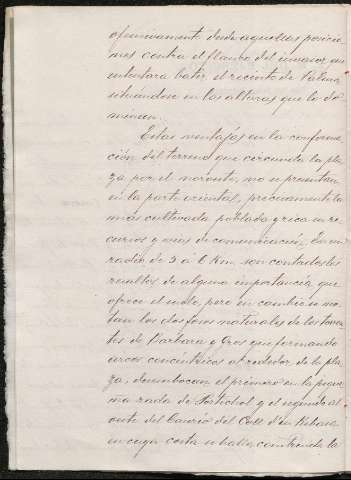 ofensivamente desde aquellas posicio-
nes contra el flanco del invasor que
intentara batir el recinto de Palma
situándose en las alturas que lo do-
minan.
Estas ventajas en la conforma-
ción del terreno que circunda la pla-
za por el noroeste, no se presentan
en la parte oriental, precisamente la
más cultivada poblada y rica en re-
cursos y vias de comunicación. En un
radio de 5 á 6 Km. son contados los
resaltos de alguna importancia que
ofrece el suelo, pero en cambio se no-
tan los dos fosos naturales de los torren-
tes de Bárbara y Gros que formando
arcos concéntricos al rededor de la pla-
za, desembocan el primero en la próxi-
ma rada de Portichol y el segundo al
oeste del Caserío del Coll d'en Rabassa
en cuya costa se halla construida la